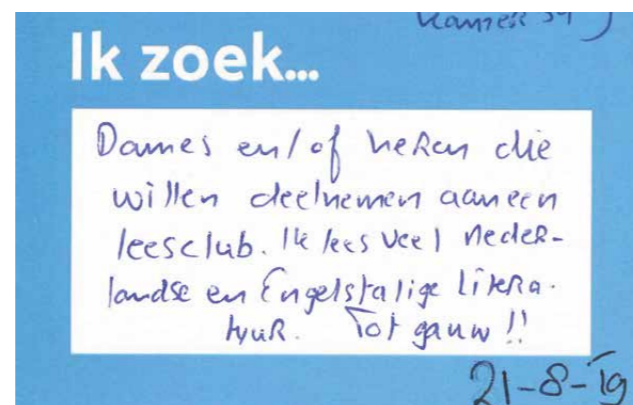 kamer 39)
Ik zoek...
Dames en/of heren die
willen deelnemen aan een
leesclub. Ik lees veel Neder-
landse en Engelstalige litera-
tuur. Tot gauw !!
21-8-19